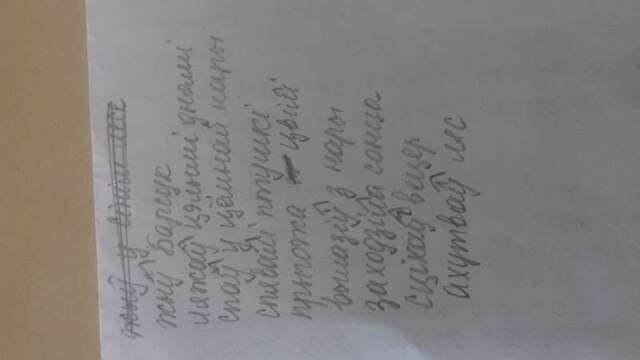 жыў у сінім лесе
жыў Барсук
ляжаў цэлымі днямі
спаў у цёмнай нары
спявалі птушкі
прыгожа цвілі
вылазіў з нары
заходзіла сонца
сціхаў вецер
ахутваў лес